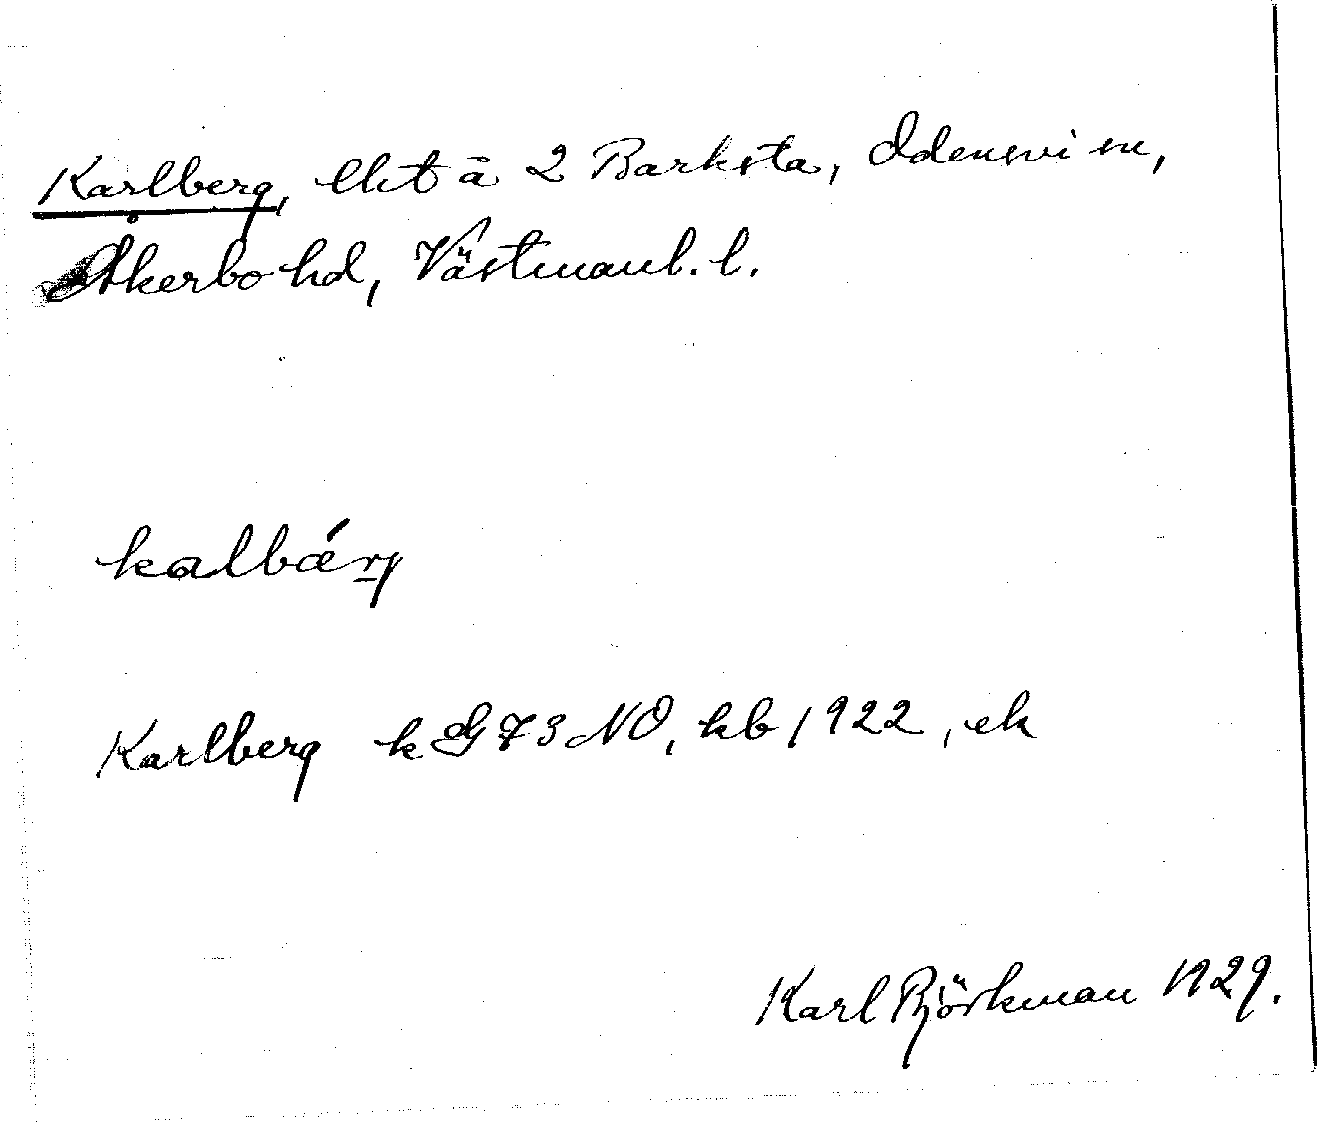 Karlberg, lht å 2 Barksta, Odensvi sn,
Åkerbo hd, Västmanl. l.
kalbärj
Karlberg k G 73 NO, kb 1922, ek
Karl Björkman 1929.